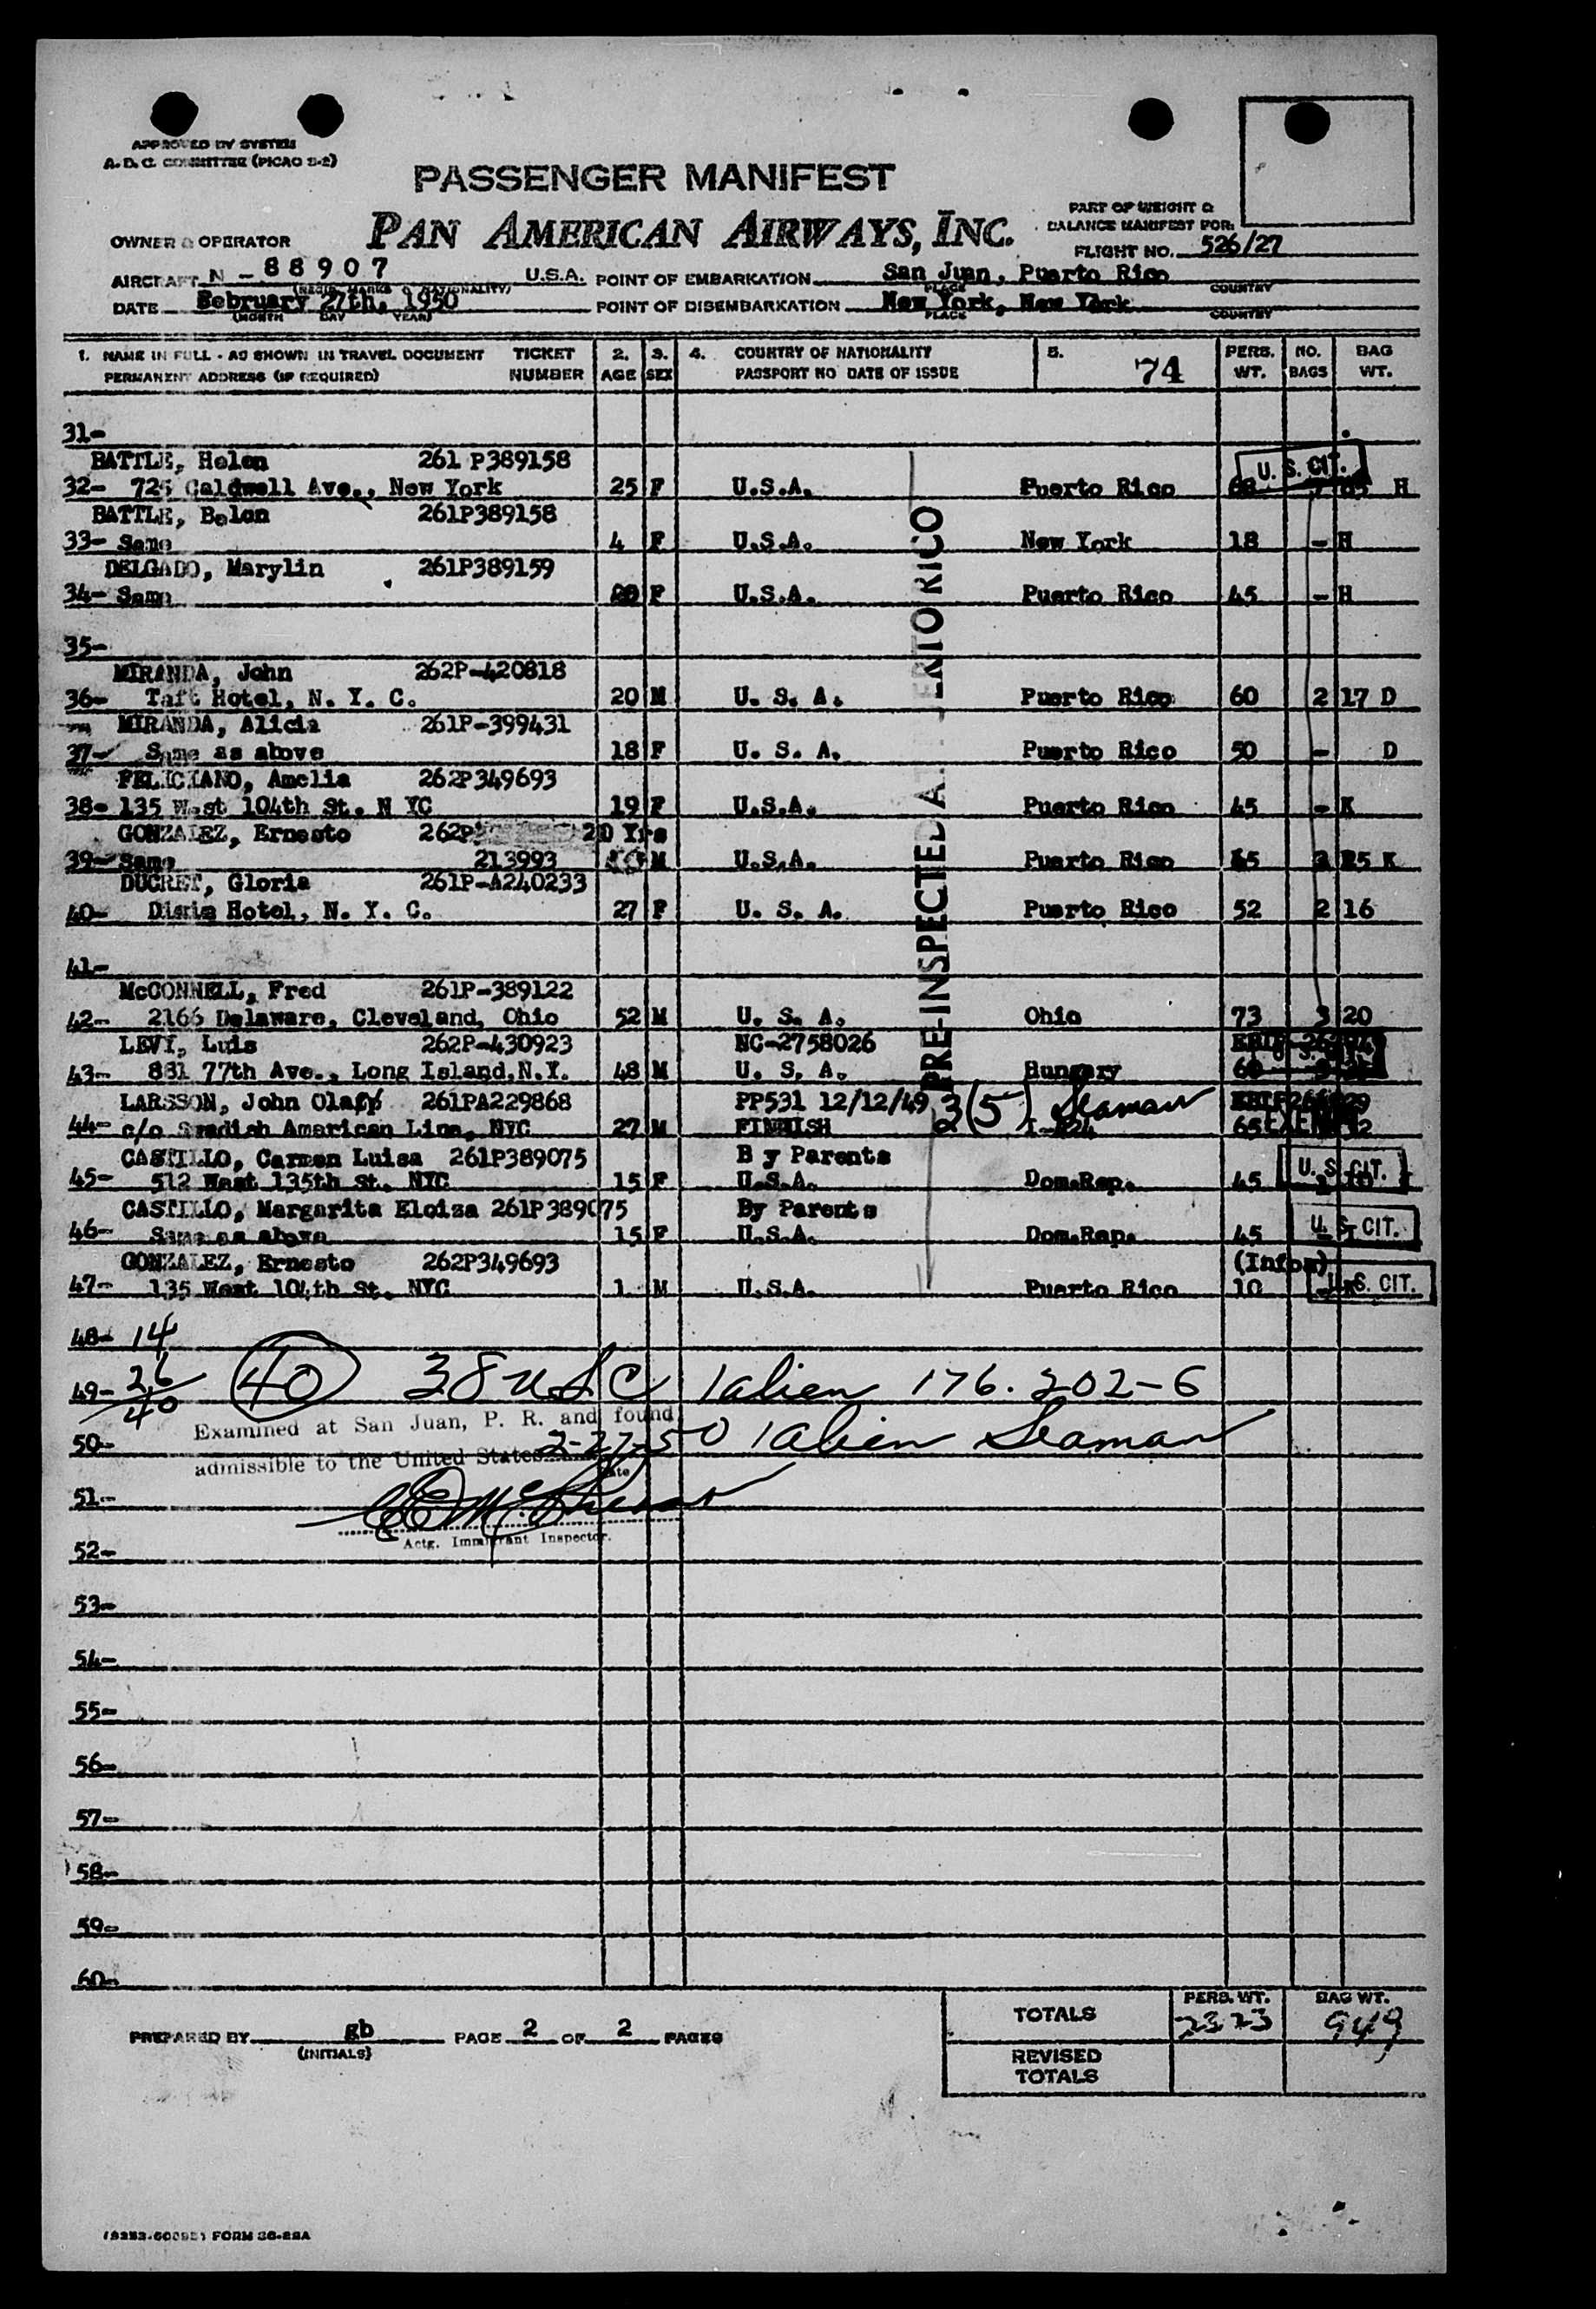 APPROVED BY SYSTEM
A. D. C. COMMITTEE (PICAO S-2)
PASSENGER MANIFEST
PAN AMERICAN AIRWAYS, INC.
PART OF WEIGHT &
BALANCE MANIFEST FOR:
OWNER & OPERATOR
FLIGHT NO. 526/27
AIRCRAFT N - 88907 U.S.A. POINT OF EMBARKATION San Juan, Puerto Rico
(REGIS. MARKS & NATIONALITY) PLACE COUNTRY
DATE February 27th, 1950 POINT OF DISEMBARKATION New York, New York
(MONTH DAY YEAR) PLACE COUNTRY
1. NAME IN FULL - AS SHOWN IN TRAVEL DOCUMENT TICKET 2. 3. 4. COUNTRY OF NATIONALITY 5. PERS. NO. BAG
PERMANENT ADDRESS (IF REQUIRED) NUMBER AGE SEX PASSPORT NO DATE OF ISSUE 74 WT. BAGS WT.
31-
BATTLE, Helen 261 P389158 U. S. CIT.
32- 725 Caldwell Ave., New York 25 F U.S.A. Puerto Rico H
BATTLE, Belen 261P389158
33- Same 4 F U.S.A. New York 18 - H
DELGADO, Marylin 261P389159
34- Same F U.S.A. Puerto Rico 45 - H
35-
MIRANDA, John 262P-420818
36- Taft Hotel, N. Y. C. 20 M U. S. A. Puerto Rico 60 2 17 D
MIRANDA, Alicia 261P-399431
37- Same as above 18 F U. S. A. Puerto Rico 50 - D
FELICIANO, Amelia 262P349693
38- 135 West 104th St. N YC 19 F U.S.A. Puerto Rico 45 - K
GONZALEZ, Ernesto 262P 20 Yrs
39- Same 213993 M U.S.A. Puerto Rico 65 25 K
DUCRET, Gloria 261P-A240233
40- Hotel, N. Y. C. 27 F U. S. A. Puerto Rico 52 2 16
41-
McCONNELL, Fred 261P-389122
42- 2166 Delaware, Cleveland, Ohio 52 M U. S. A. Ohio 73 3 20
LEVY, Luis 262P-430923 NC-2758026
43- 881 77th Ave., Long Island, N.Y. 48 M U. S. A. Hungary 60
LARSSON, John Olaf 261PA229868 PP531 12/12/49 3(5) Seaman
44- c/o Swedish American Line, NYC 27 M FINNISH 65
CASTILLO, Carmen Luisa 261P389075 B y Parents
45- 512 West 135th St. NYC 15 F U.S.A. Dom.Rep. 45 U. S. CIT.
CASTILLO, Margarita Eloiza 261P389075 By Parents
46- Same as above 15 F U.S.A. Dom.Rep. 45 U. S. CIT.
GONZALEZ, Ernesto 262P349693 (Infon)
47- 135 West 104th St. NYC 1 M U.S.A. Puerto Rico 10 U.S. CIT.
PRE-INSPECTED AT PUERTO RICO
48- 14
49- 26 (40) 38 USC 1 alien 176.202-6
40
Examined at San Juan, P. R. and found
50- 2-27-50 1 alien Seaman
admissible to the United States
Date
51-
Actg. Immigrant Inspector.
52-
53-
54-
55-
56-
57-
58-
59-
60-
TOTALS PERS. WT. 2323 BAG WT. 949
PREPARED BY gb PAGE 2 OF 2 PAGES
(INITIALS)
REVISED
TOTALS
FORM 36-28A